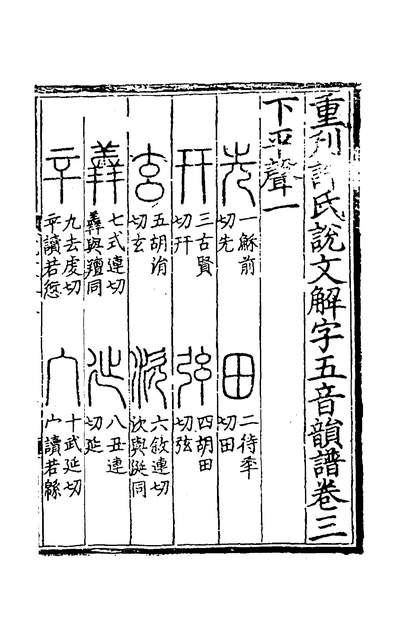 重刋許氏說文解字五音韻譜卷三
下平聲一
先
一穌前
切先
田
二待秊
切田
幵
三古賢
切幵
弦
四胡田
切弦
玄
五胡涓
切玄
㳄
六敘連切
㳄與涎同
羴
七式連切
羴與羶同
㢟
八丑連
切㢟
䇂
九去虔切
䇂讀若愆
宀
十武延切
宀讀若緜